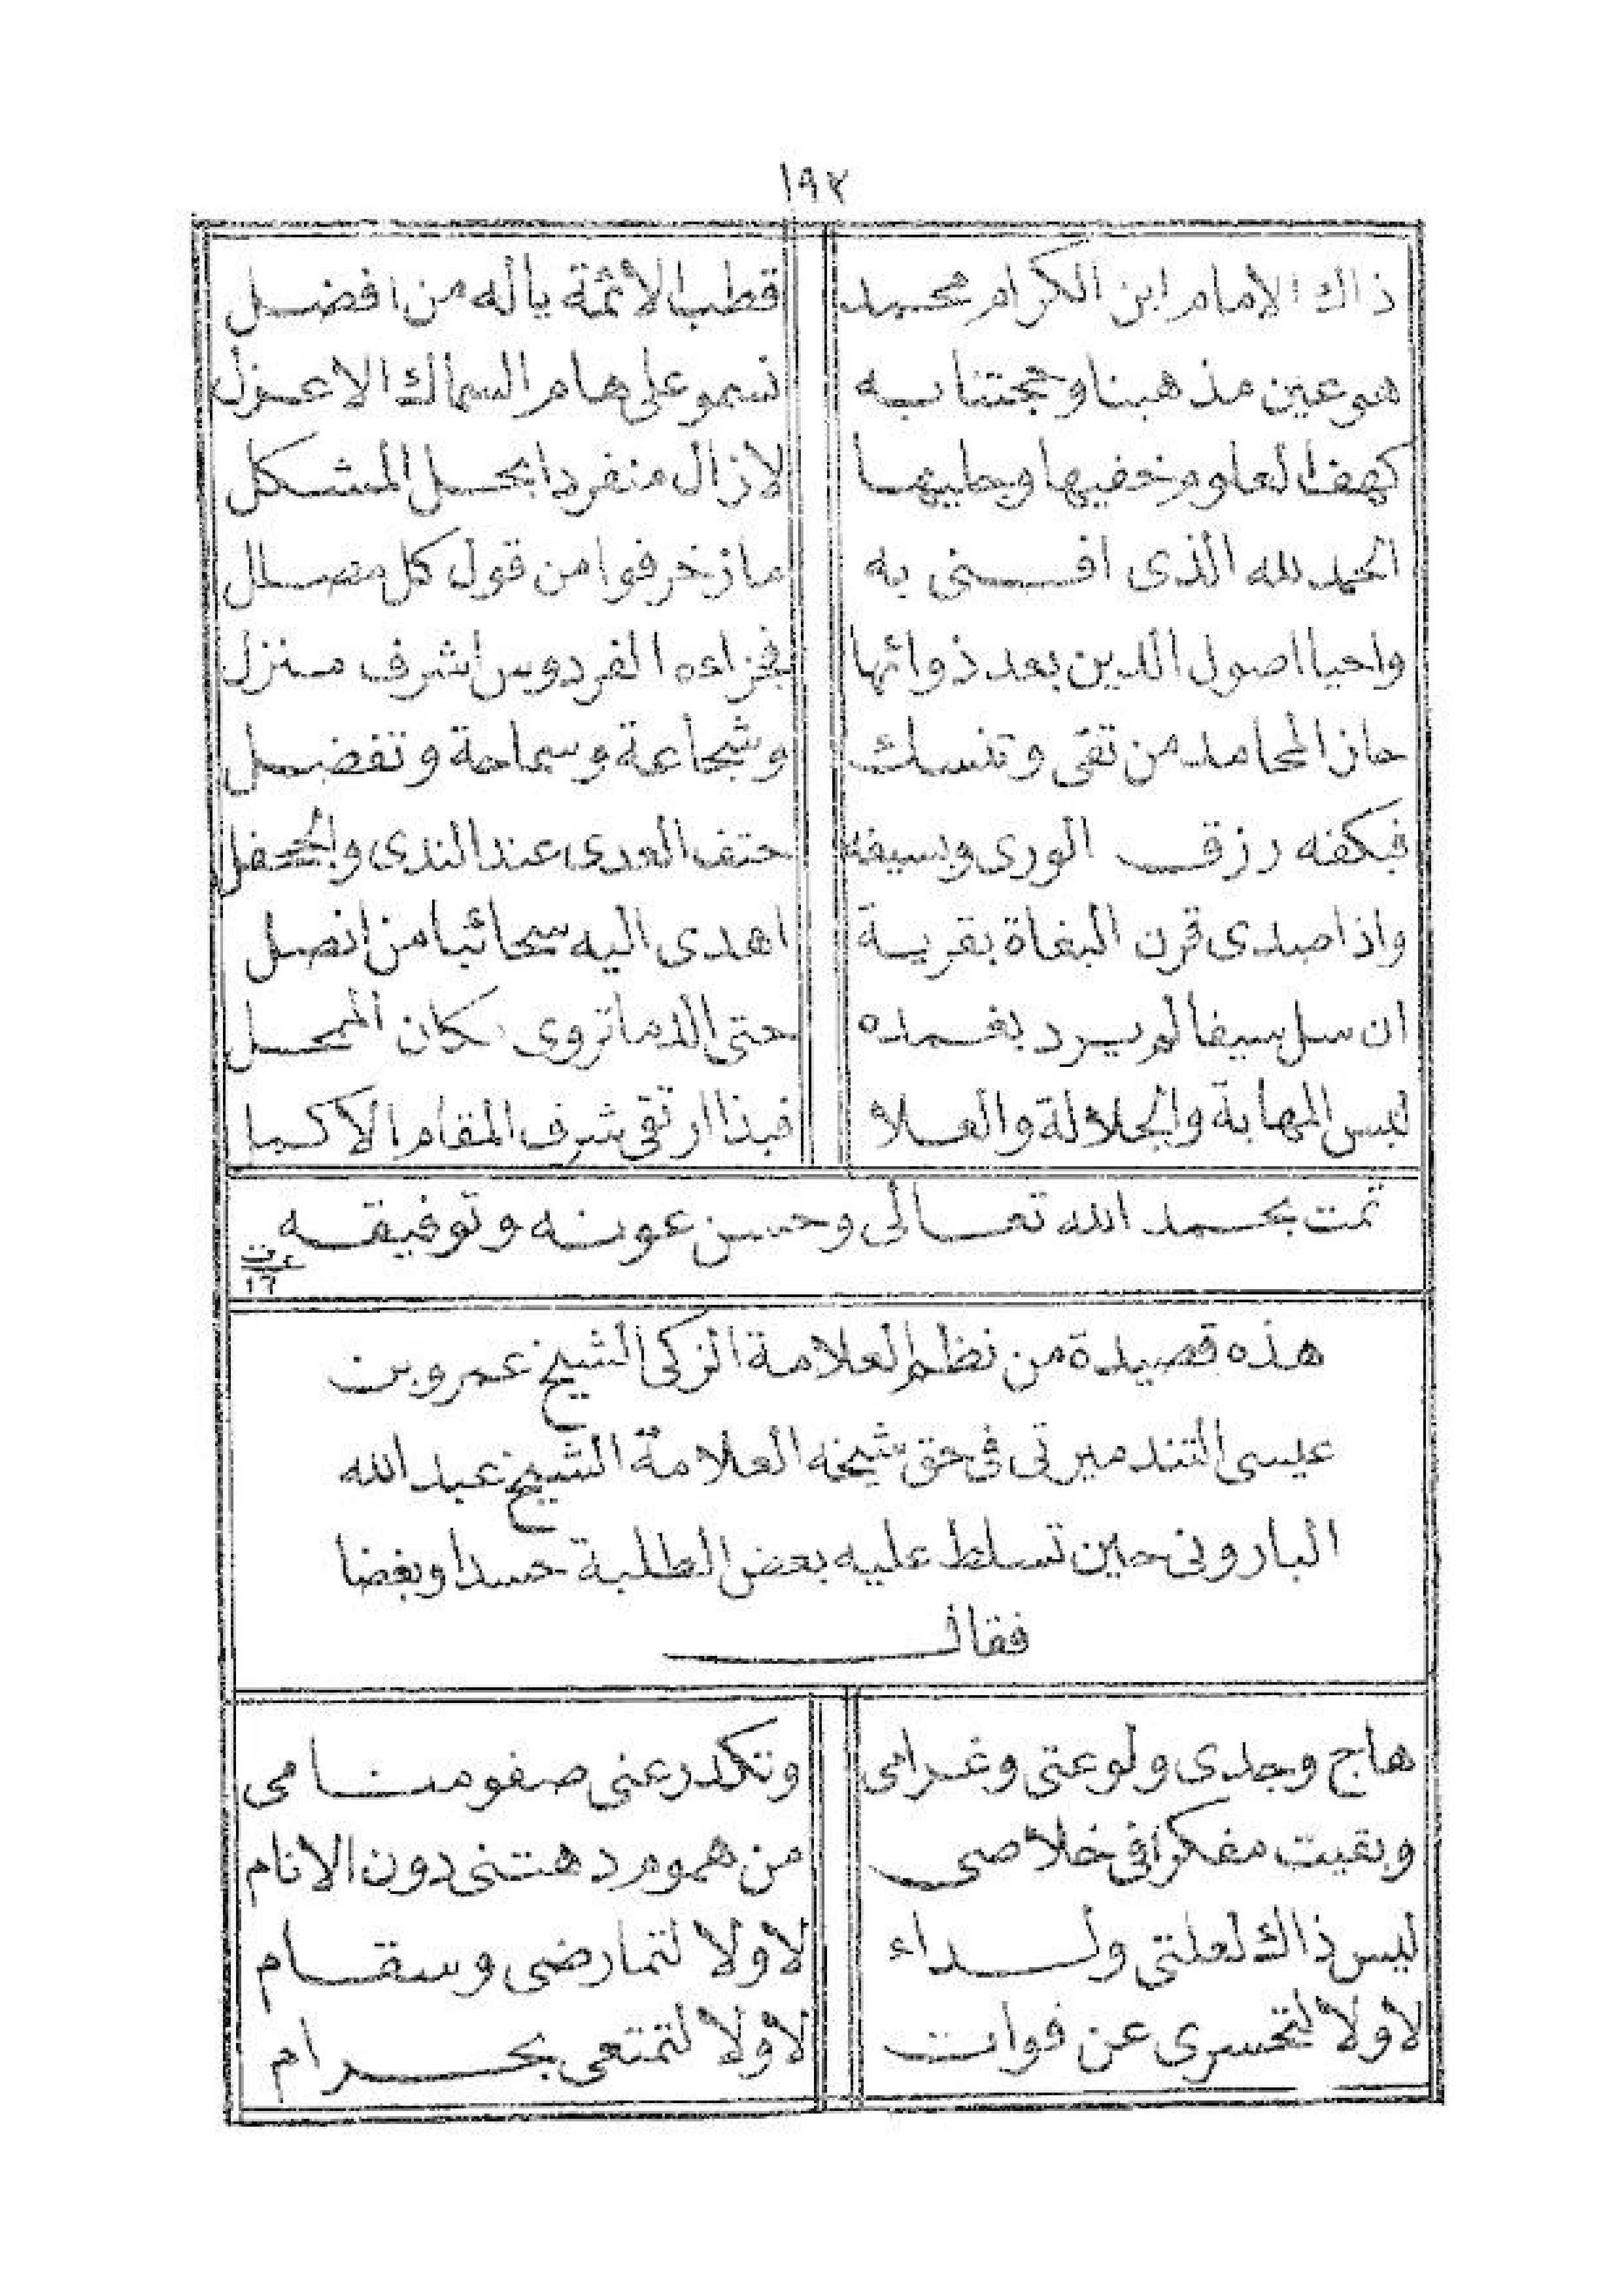 ١٩٢
ذاك الإمام ابن الكرام محمد قطب الأئمة ياله من افضل
هو عين مذهبنا وحجتنا به نسمو على هام السماك الاعزل
كهف العلوم خفيها وجليها لازال منفردا بحل المشكل
الحمد لله الذى افنى به ما زخرفوا من قول كل مضلل
واحيا اصول الدين بعد ذوائها فجزاءه الفردوس اشرف منزل
حاز المحامد من تقى وتنسك وشجاعة وسماحة وتفضل
فبكفه رزق الورى وبسيفه حتف العدى عند الندى والجحفل
واذا صدى قرن البغاة بقرية اهدى اليه سحائبا من انصل
ان سل سيفا لم يرد بغمده حتى الدما تروى مكان الممحل
لبس المهابة والجلالة والعلا فبذا ارتقى شرف المقام الاكمل
تمت بحمد الله تعالى وحسن عونه وتوفيقه
١٦
هذه قصيدة من نظم العلامة الزكى الشيخ عمرو بن
عيسى التندميرتى فى حق شيخه العلامة الشيخ عبد الله
البارونى حين تسلط عليه بعض الطلبة حسدا وبغضا
فقال
هاج وجدى ولوعتى وغرامى وتكدر عنى صفو منامى
وبقيت مفكرا فى خلاصى من هموم دهتنى دون الانام
ليس ذاك لعلتى ولداء لا ولا لتمارضى وسقام
لا ولا لتحسرى عن فوات لا ولا لتمتعى بحرام